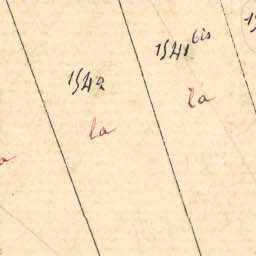 1541 bis
1542
la
la